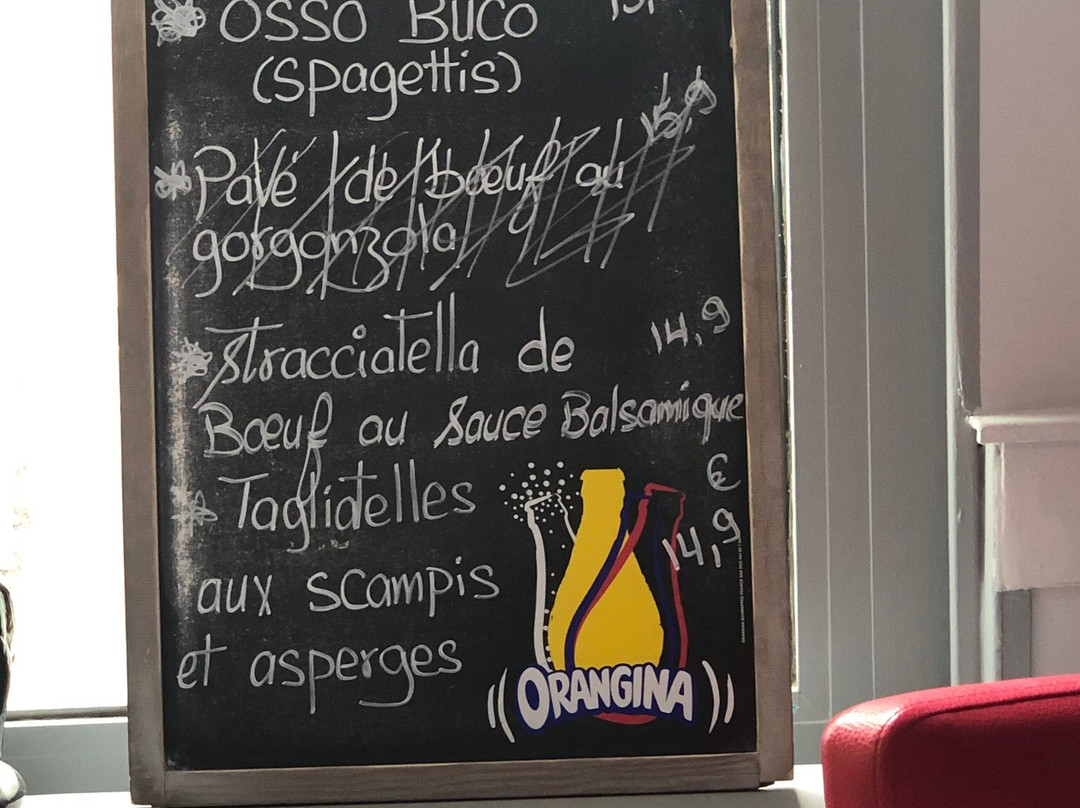 OSSO BUCO
(spagettis)
Pavé de bœuf au 15,9
gorgonzola
Stracciatella de 14,9
Bœuf au sauce Balsamique
€
Tagliatelles
14,9
aux scampis
et asperges
ORANGINA